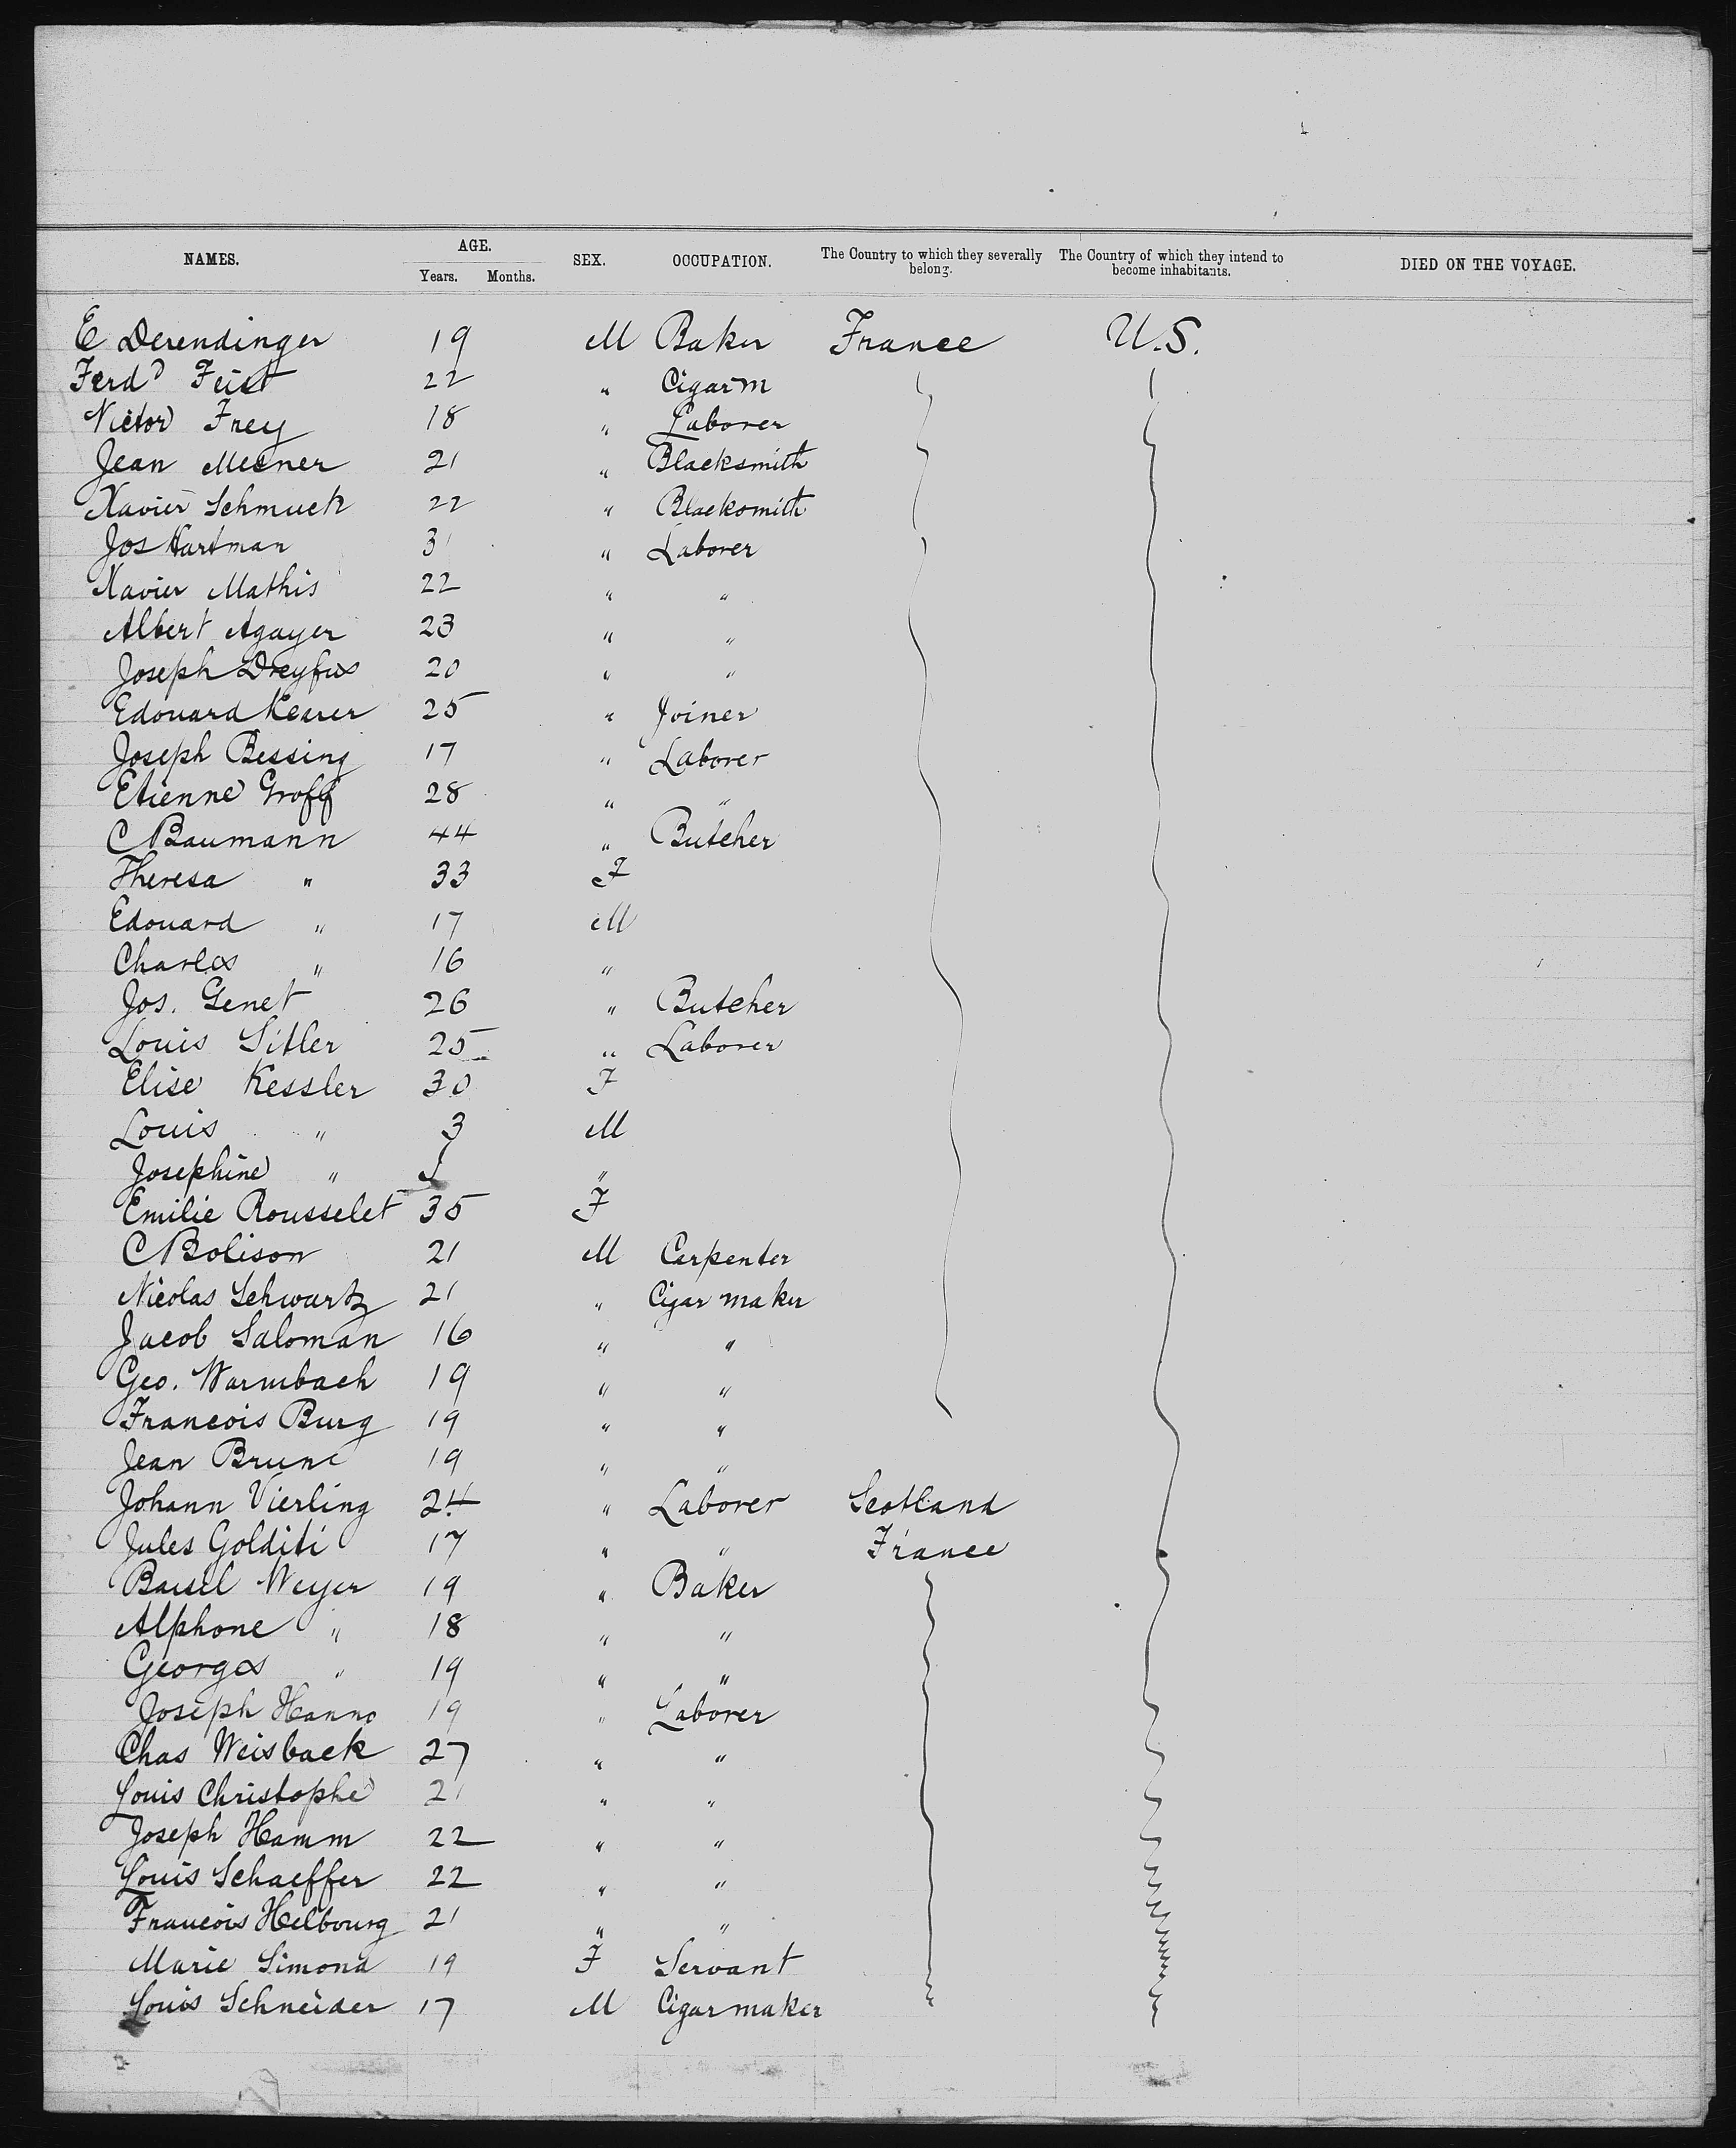 NAMES. AGE. Years. Months. SEX. OCCUPATION. The Country to which they severally belong. The Country of which they intend to become inhabitants. DIED ON THE VOYAGE.
E Derendinger 19 M Baker France U.S.
Ferdd Feist 22 " Cigar m
Victor Frey 18 " Laborer
Jean Mesner 21 " Blacksmith
Xavier Schmuck 22 " Blacksmith
Jos Hartman 31 " Laborer
Xavier Mathis 22 " "
Albert Agayer 23 " "
Joseph Dreyfus 20 " "
Edouard 25 " Joiner
Joseph Bessing 17 " Laborer
Etienne Groff 28 " "
C Baumann 44 " Butcher
Theresa " 33 F
Edouard " 17 M
Charles " 16 "
Jos. Genet 26 " Butcher
Louis Sitler 25 " Laborer
Elise Kessler 30 F
Louis " 3 M
Josephine " "
Emilie Rousselet 35 F
C Bolison 21 M Carpenter
Nicolas Schwartz 21 " Cigar maker
Jacob Saloman 16 " "
Geo. Warmbach 19 " "
Francois Burg 19 " "
Jean Brune 19 " "
Johann Vierling 24 " Laborer Scotland
Jules Golditi 17 " " France
Basil Weyer 19 " Baker
Alphone " 18 " "
Georges " 19 " "
Joseph Hanno 19 " Laborer
Chas Weisback 27 " "
Louis Christophe 21 " "
Joseph Hamm 22 " "
Louis Schaeffer 22 " "
Francois Helbourg 21 " "
Marie Simona 19 F Servant
Louis Schneider 17 M Cigar maker